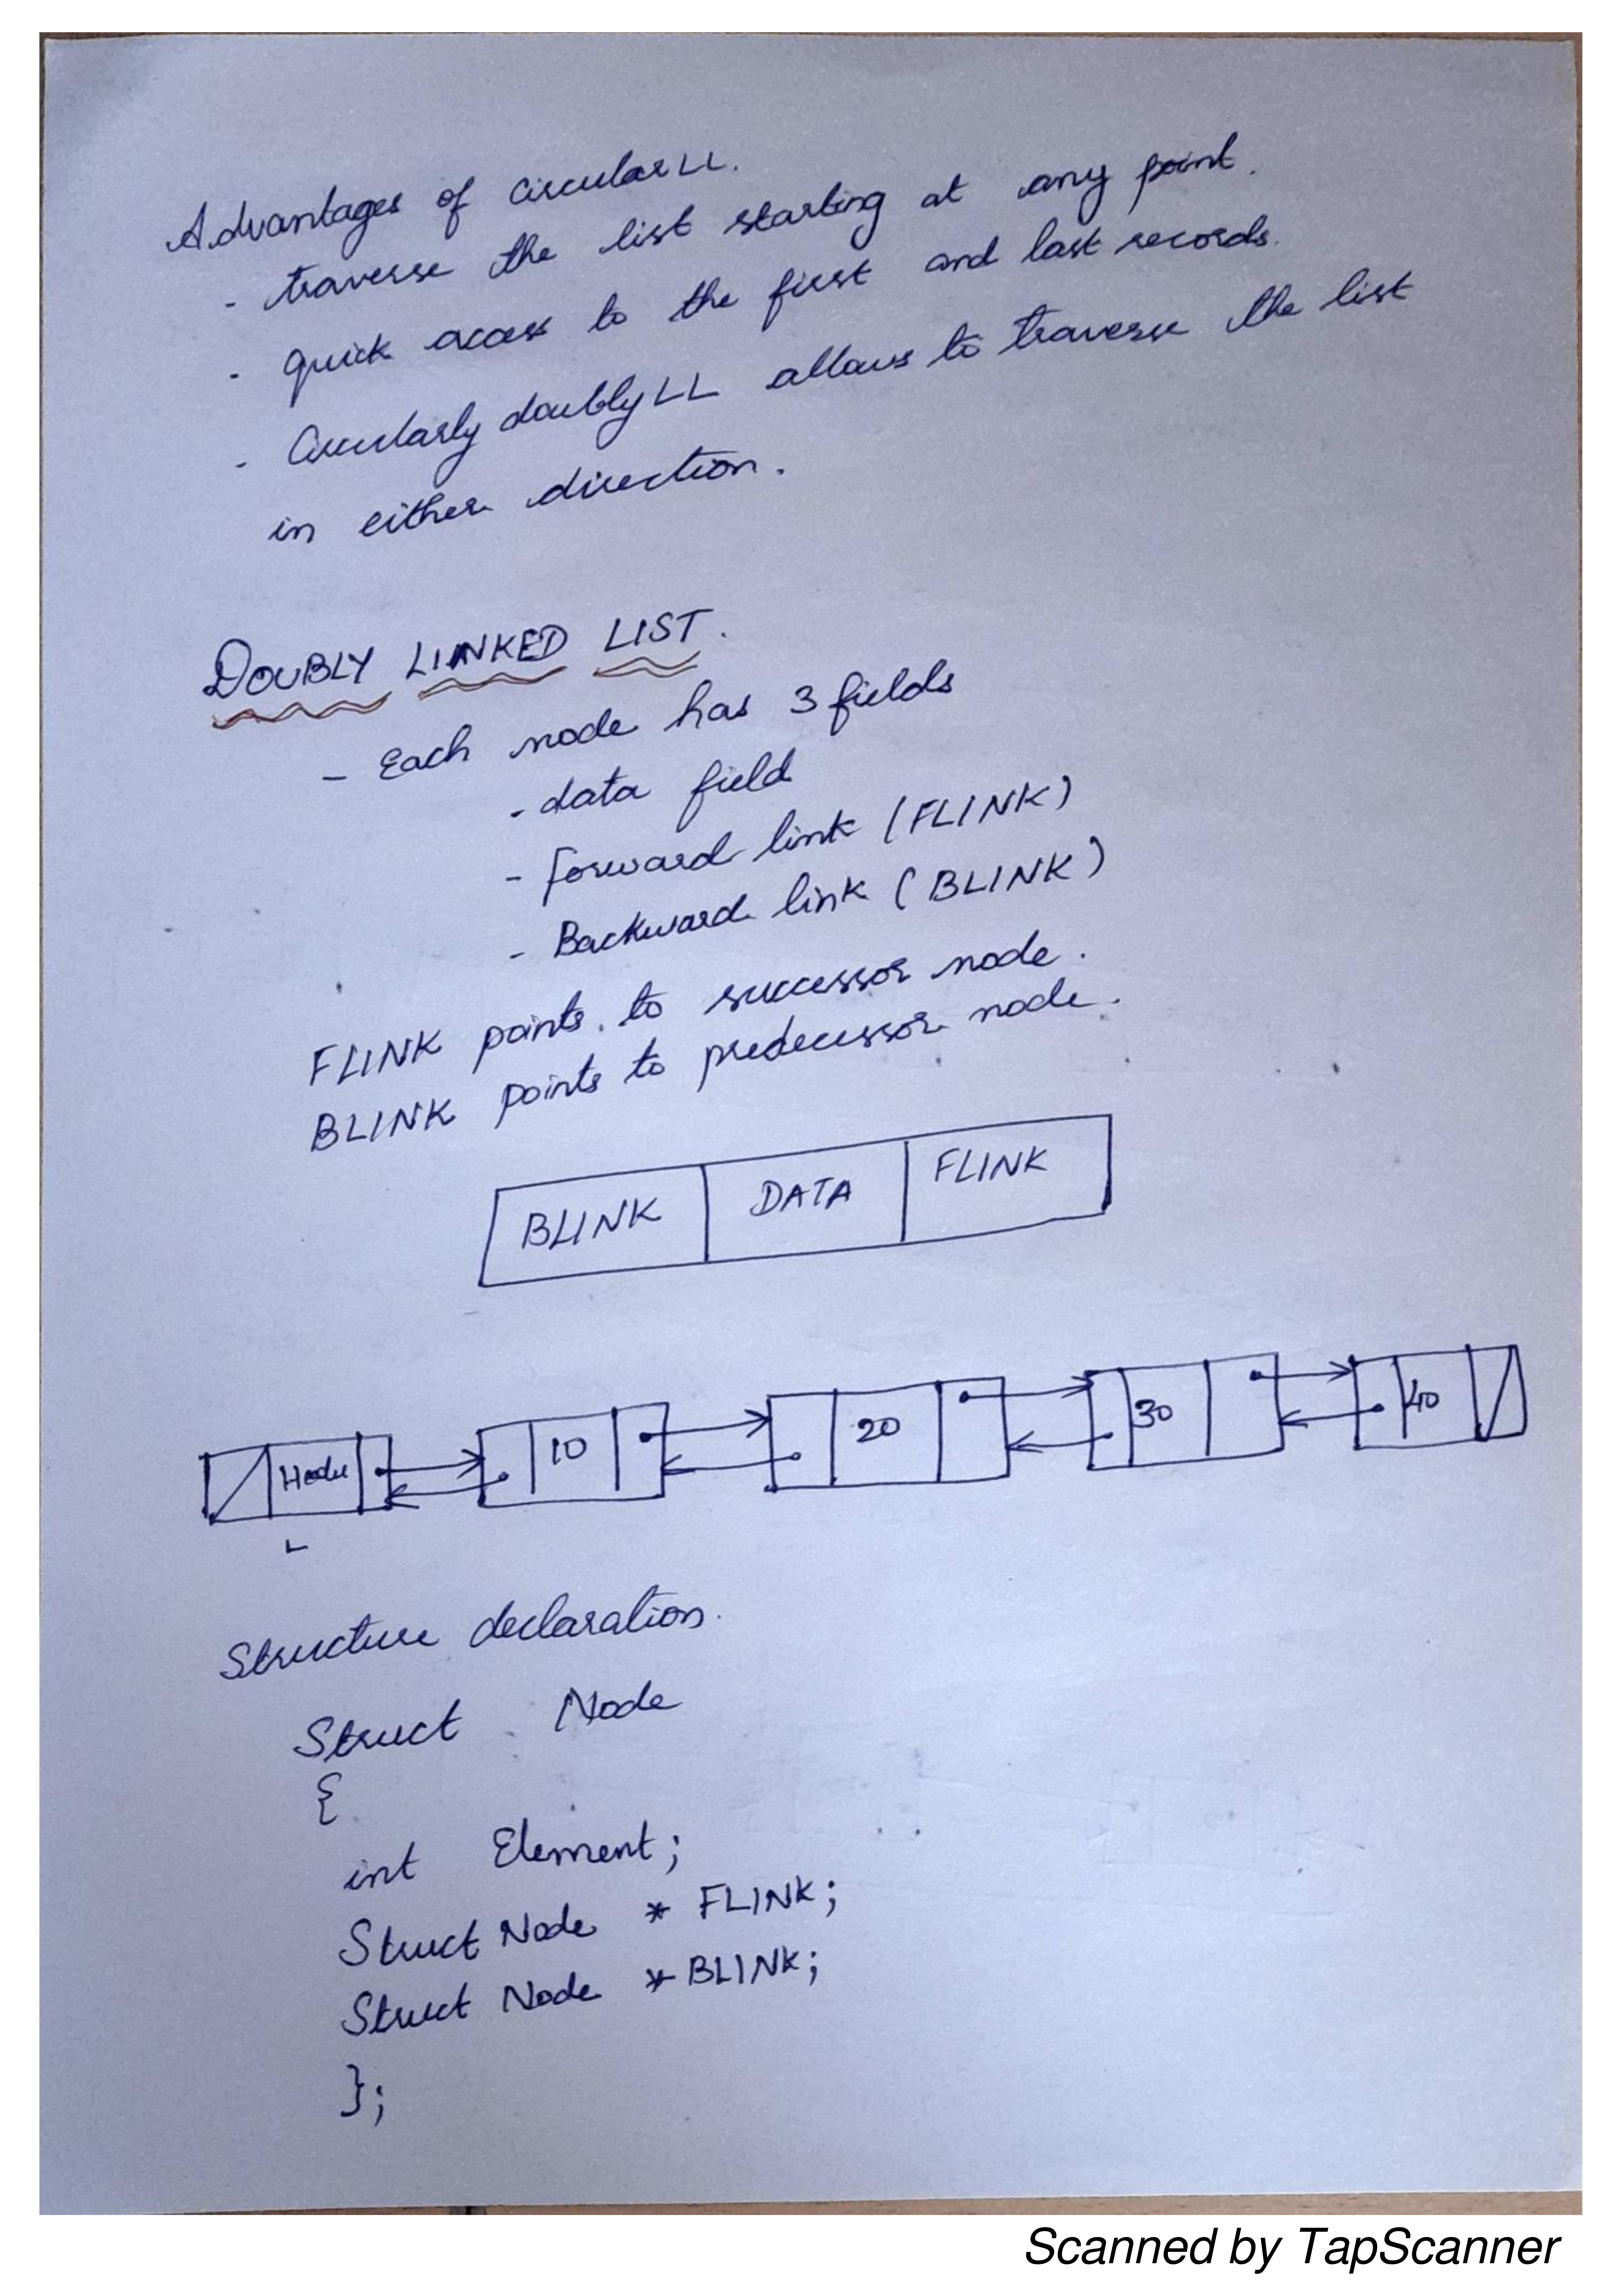 Advantages of circular LL.
- traverse the list starting at any point.
- quick access to the first and last records.
- Circularly doubly LL allows to traverse the list
in either direction.
DOUBLY LINKED LIST.
- Each node has 3 fields
- data field
- Forward link (FLINK)
- Backward link (BLINK)
FLINK points to successor node.
BLINK points to predecessor node.
BLINK DATA FLINK
10 20 30 40
L
Structure declaration.
Struct Node
{
int Element;
Struct Node * FLINK;
Struct Node * BLINK;
};
Scanned by TapScanner